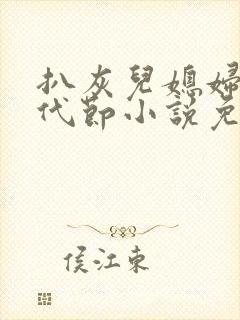 扒灰兒媳婦
代節小說免
侯江東